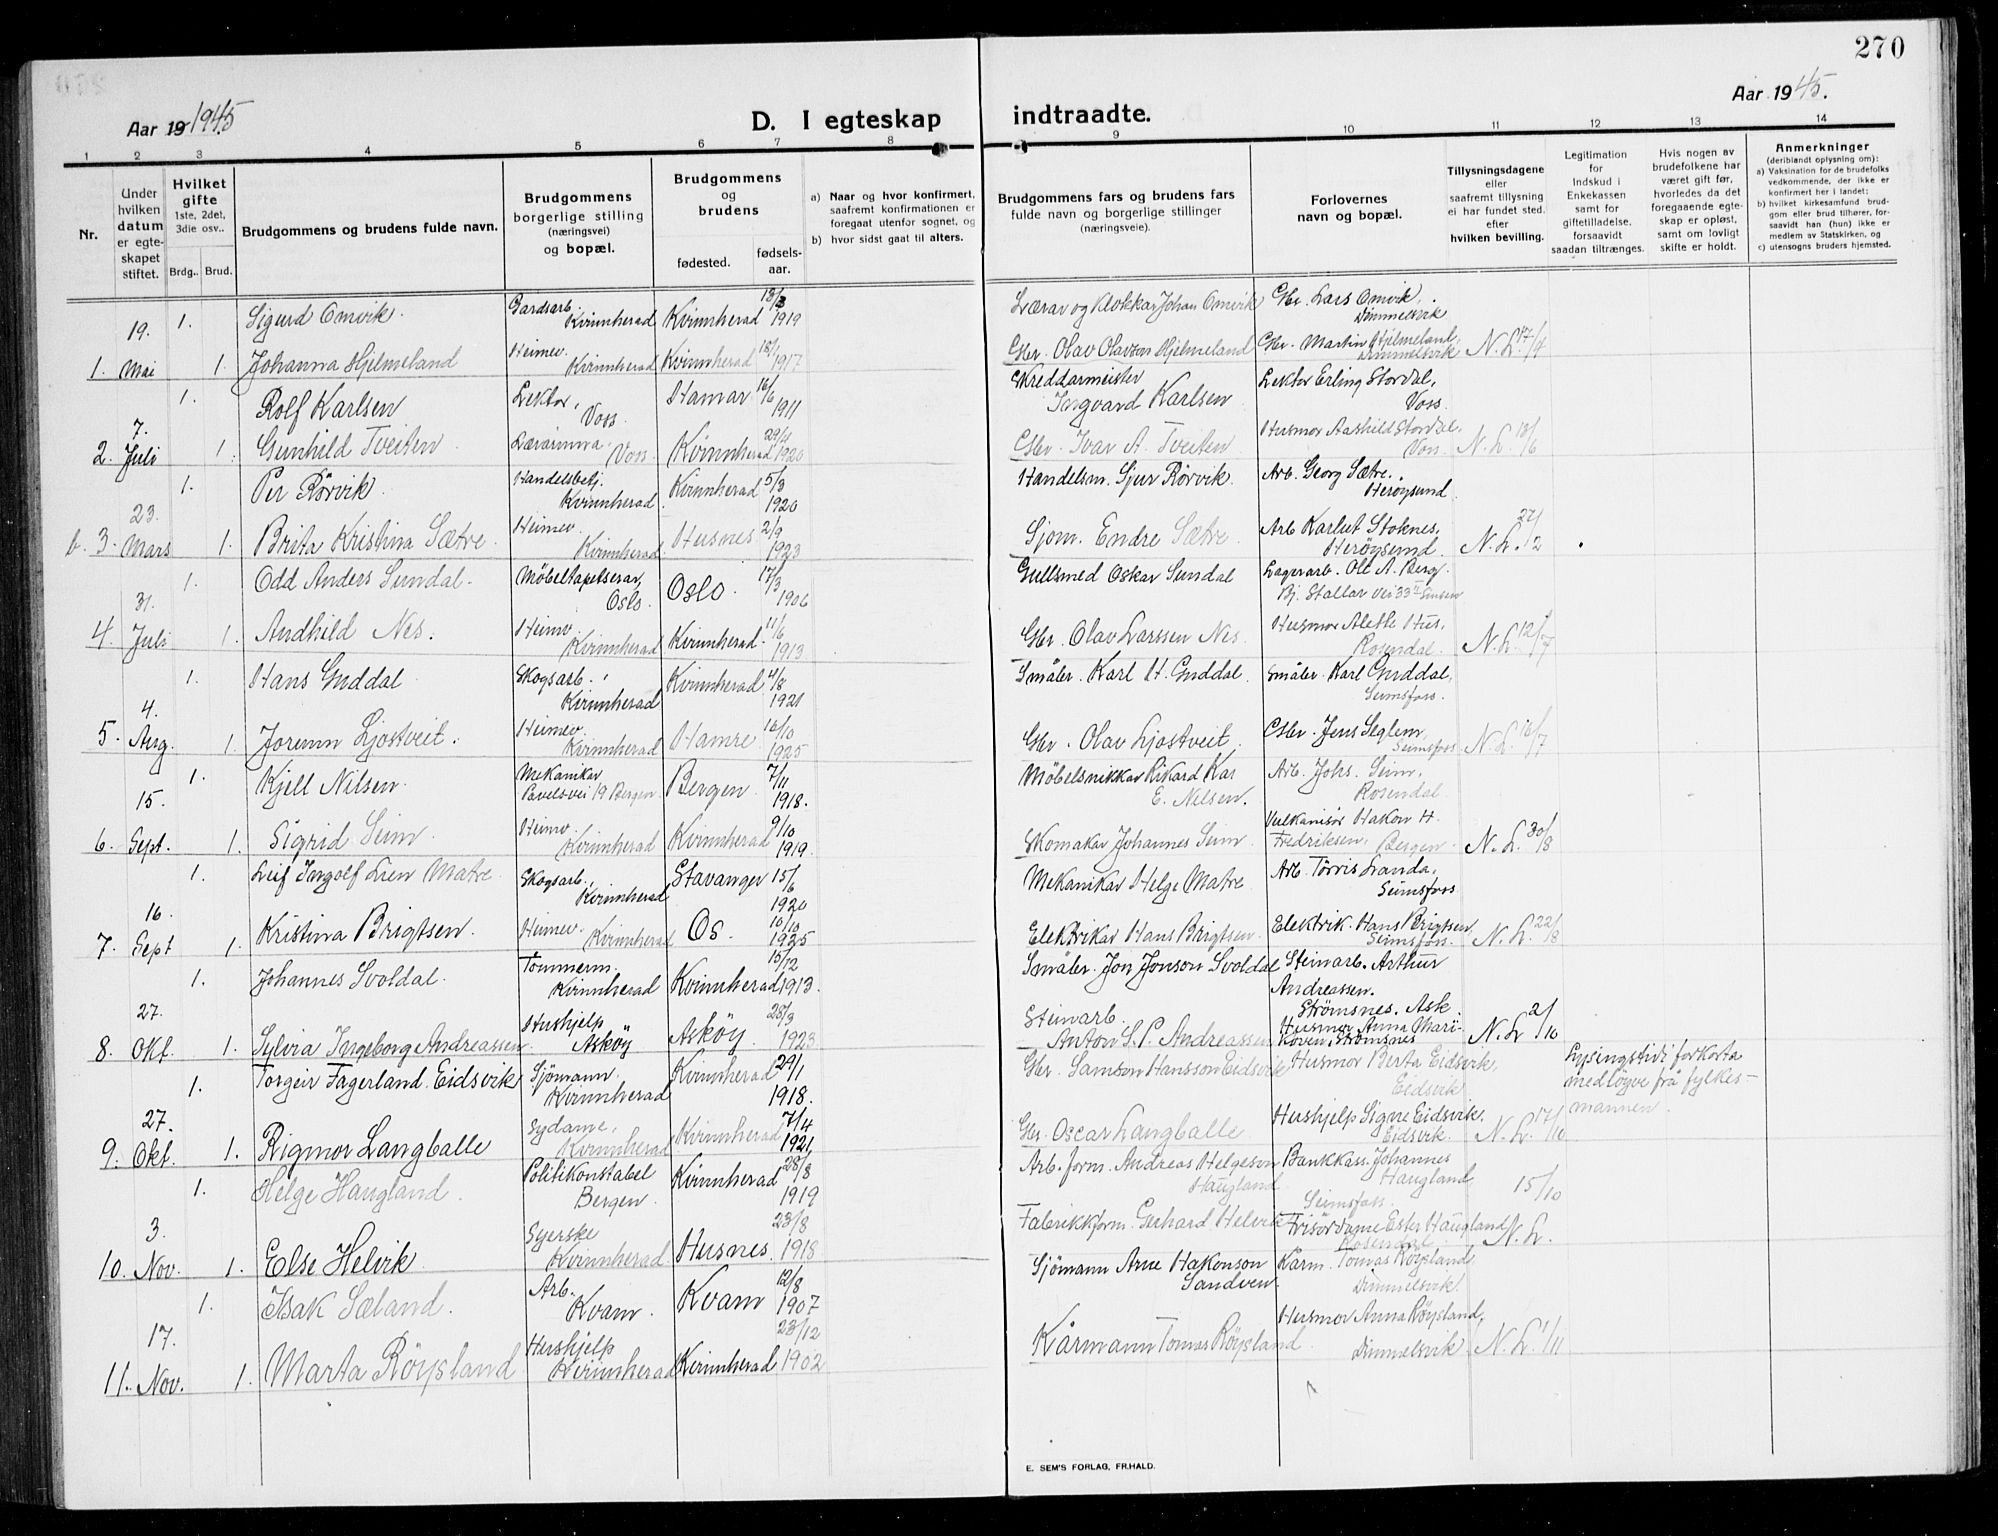 270
Aar 19 1945
D. I egteskap indtraadte.
Aar 1945.
1 2 3 4 5 6 7 8 9 10 11 12 13 14
Nr.
Under hvilken datum er egteskapet stiftet.
Hvilket gifte
1ste, 2det, 3die osv..
Brdg.. Brud.
Brudgommens og brudens fulde navn.
Brudgommens borgerlige stilling (næringsvei) og bopæl.
Brudgommens og brudens
fødested.
fødsels-aar.
a) Naar og hvor konfirmert, saafremt konfirmationen er foregaat utenfor sognet, og
b) hvor sidst gaat til alters.
Brudgommens fars og brudens fars fulde navn og borgerlige stillinger (næringsveie).
Forlovernes navn og bopæl.
Tillysningsdagene eller saafremt tillysning ei har fundet sted. efter hvilken bevilling.
Legitimation for Indskud i Enkekassen samt for giftetilladelse, forsaavidt saadan tiltrænges.
Hvis nogen av brudefolkene har været gift før, hvorledes da det foregaaende egteskap er opløst, samt om lovligt skifte er holdt.
Anmerkninger
(deriblandt oplysning om):
a) Vaksination for de brudefolks vedkommende, der ikke er konfirmert her i landet;
b) hvilket kirkesamfund brudgom eller brud tilhører, forsaavidt han (hun) ikke er medlem av Statskirken, og
c) utensogns bruders hjemsted.
1. Sigurd Omvik. Gardsarb. Kvinnherad Kvinnherad 13/3 1919 Lærar og Klokkar Johan Omvik Gbr. Lars Omvik, Dimmelsvik
1. 19. Mai 1. Johanna Hjelmeland Heimev. Kvinnherad Kvinnherad 18/1 1917 Gbr. Olav Olavson Hjelmeland Gbr. Martin Hjelmeland, Dimmelsvik N.L. 17/4
1. Rolf Karlsen Lektor, Voss. Hamar 16/6 1911 Skreddarmeister Ingvard Karlsen Lektor Erling Stordal, Voss.
2. 7. Juli 1. Gunhild Tveiten. Lærarinna, Voss. Kvinnherad 29/4 1920 Gbr. Ivar A. Tveiten Husmor Aashild Stordal, Voss. N.L. 18/6
1. Per Rørvik. Handelsbetj. Kvinnherad Kvinnherad 5/3 1920 Handelsm. Sjur Rørvik. Arb. Georg Sætre. Herøysund
b. 3. 23. Mars 1. Brita Kristina Sætre. Heimev. Kvinnherad Husnes 2/9 1923 Sjøm. Endre Sætre. Arb. Karlut Stoknes, Herøysund. N.L. 27/2
1. Odd Anders Sundal. Møbeltapetserar, Oslo. Oslo. 17/3 1906 Gullsmed Oskar Sundal Lagerarb. Ole A. Berg. Bj. Stallar vei 33 II Sinsen
4. 31. Juli 1. Andhild Nes. Heimv. Kvinnherad Kvinnherad. 11/6 1913 Gbr. Olav Larssen Nes. Husmor Alette Hus, Rosendal. N.L. 12/7
1. Hans Guddal Skogsarb. Kvinnherad Kvinnherad 4/8 1921 Småbr. Karl H. Guddal. Småbr. Karl Guddal, Seimsfoss.
5. 4. Aug. 1. Jorunn Ljostveit. Heimev. Kvinnherad Hamre. 16/10 1925 Gbr. Olav Ljostveit. Gbr. Jens Seglem, Seimsfoss N.L. 16/7
1. Kjell Nilsen. Mekanikar Pavelsvei 19 Bergen Bergen 7/11 1918. Møbelsnikkar Rikard Kar E. Nilsen. Arb. Johs. Seim, Rosendal.
6. 15. Sept. 1. Sigrid Seim. Heimv. Kvinnherad Kvinnherad 9/10 1919. Skomakar Johannes Seim. Vulkanisør Hakon H. Fredriksen, Bergen. N.L. 30/8
1. Leif Ingolf Lien Matre. Skogsarb., Kvinnherad Stavanger 15/6 1920 Mekanikar Helge Matre Arb. Tørris Landa, Seimsfoss
7. 16. Sept 1. Kristina Brigtsen. Heimev. Kvinnherad Os. 10/10 1925 Elektrikar Hans Brigtsen. Elektrik. Hans Brigtsen Seimsfoss. N.L. 22/8
1. Johannes Svoldal. Tømmerm. Kvinnherad Kvinnherad 15/12 1913. Småbr. Jon Jonson Svoldal Steinarb. Arthur Andreassen. Strømsnes. Ask.
8. 27. Okt. 1. Sylvia Ingeborg Andreassen Hushjelp Askøy Askøy. 28/3 1923 Steinarb. Anton S.P. Andreassen Husmor Anna Mari- Koven, Strømsnes N.L. 2/10
1. Torgeir Fagerland Eidsvik Sjømann. Kvinnherad Kvinnherad 29/1 1918. Gbr. Samson Hansson Eidsvik Husmor Berta Eidsvik, Eidsvik Lysingstidi forkorta med løyve frå fylkes- mannen.
9. 27. Okt. 1. Rigmor Langballe Sydame, Kvinnherad Kvinnherad 7/4 1921 Gbr. Oscar Langballe Hushjelp Signe Eidsvik. Eidsvik. N.L. 17/10
1. Helge Haugland. Politikonstabel Bergen. Kvinnherad 28/8 1919 Arb. form. Andreas Helgeson Haugland Bankkass. Johannes Haugland Seimsfoss. 15/10
10. 3. Nov. 1. Else Helvik. Syerske Kvinnherad. Husnes. 23/8 1918 Fabrikkform. Gerhard Helvik Frisørdame Ester Haugland Rosendal. N.L.
1. Isak Sæland. Arb. Kvam. Kvam 12/8 1907 Sjømann Arne Hakonson Sandven Kårm. Tomas Røysland Dimmelsvik.
11. 17. Nov. 1. Marta Røysland Hushjelp Kvinnherad Kvinnherad 23/12 1902 Kårmann Tomas Røysland. Husmor Anna Røysland, Dimmelsvik N.L. 1/11
E. SEM'S FORLAG, FR.HALD.